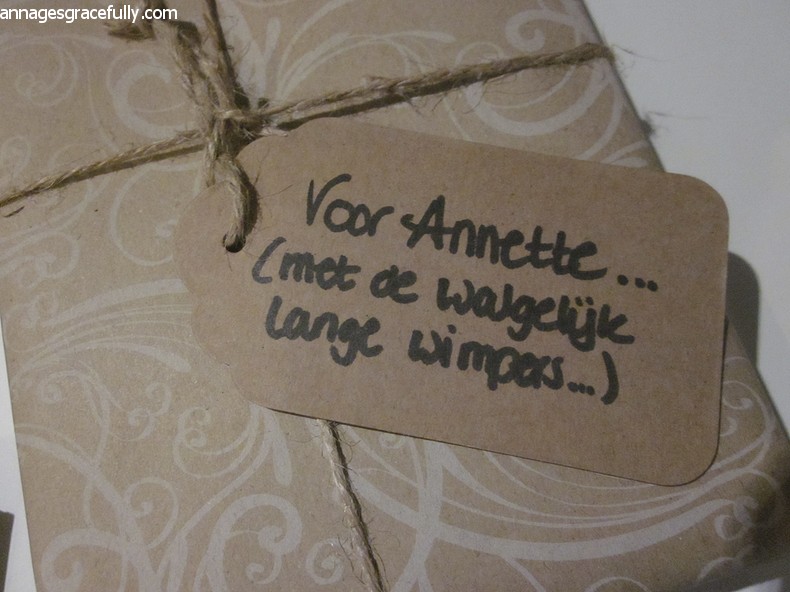 annagesgracefully.com
Voor Annette...
(met de walgelijk
lange wimpers...)